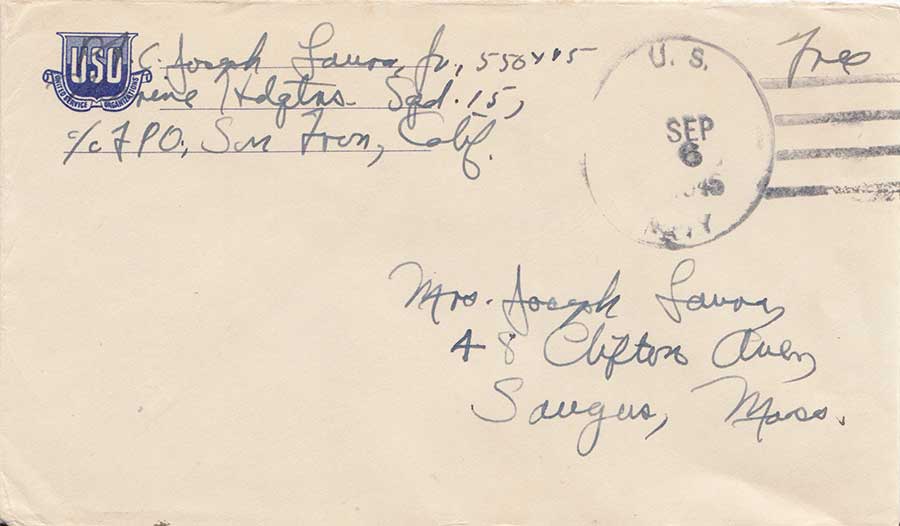 USO
UNITED SERVICE ORGANIZATIONS
Joseph Jr.,
Hdqtrs. Sqd. 15,
c/o FPO, San Fran, Calif.
Free
U. S.
SEP
6
NAVY
Mrs. Joseph
48 Clifton Ave,
Saugus, Mass.